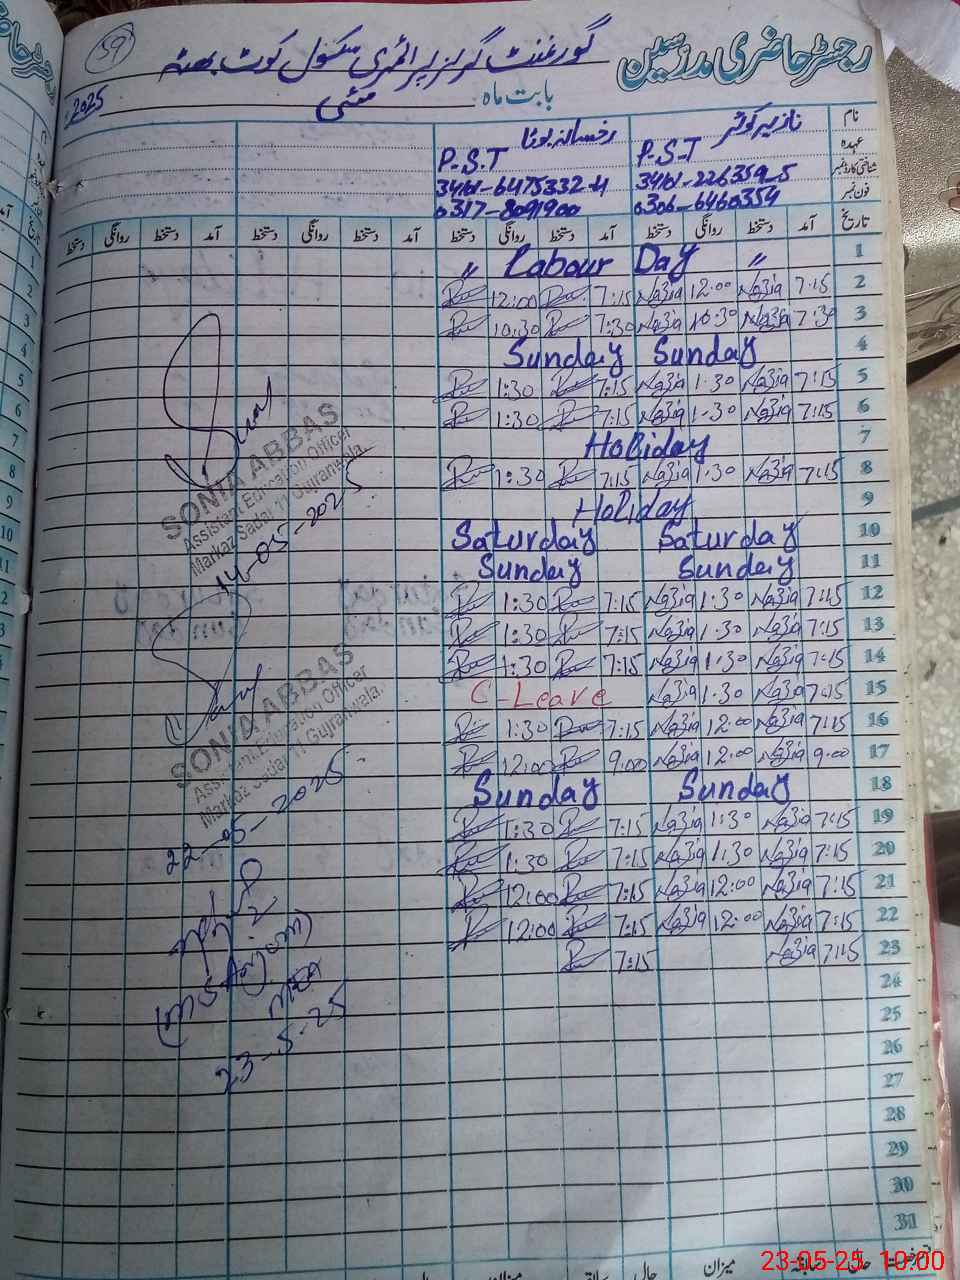 59
گورنمنٹ گرلز پرائمری سکول کوٹ بھٹہ
رجسٹر حاضری مدرسین
بابت ماہ مئی 2025
نام نازیہ کوثر رخسانہ
عہدہ P.S.T P.S.T
شناختی کارڈ نمبر
فون نمبر 0306-6460354 0317-8091900
تاریخ آمد دستخط روانگی دستخط آمد دستخط روانگی دستخط آمد دستخط روانگی دستخط آمد دستخط روانگی دستخط
" Labour Day " 1
12:00 7:15 Nazia 12:00 Nazia 7:15 2
10:30 7:30 Nazia 10:30 Nazia 7:30 3
Sunday Sunday 4
1:30 7:15 Nazia 1:30 Nazia 7:15 5
1:30 7:15 Nazia 1:30 Nazia 7:15 6
Holiday 7
1:30 7:15 Nazia 1:30 Nazia 7:15 8
Holiday 9
Saturday Saturday 10
Sunday Sunday 11
1:30 7:15 Nazia 1:30 Nazia 7:15 12
1:30 7:15 Nazia 1:30 Nazia 7:15 13
1:30 7:15 Nazia 1:30 Nazia 7:15 14
C-Leave Nazia 1:30 Nazia 7:15 15
1:30 7:15 Nazia 12:00 Nazia 7:15 16
12:00 9:00 Nazia 12:00 Nazia 9:00 17
Sunday Sunday 18
1:30 7:15 Nazia 1:30 Nazia 7:15 19
1:30 7:15 Nazia 1:30 Nazia 7:15 20
12:00 7:15 Nazia 12:00 Nazia 7:15 21
12:00 7:15 Nazia 12:00 Nazia 7:15 22
7:15 Nazia 7:15 23
24
25
26
27
28
29
30
31
SONIA ABBAS
Assistant Education Officer
Markaz Sadar 11 Gujranwala.
14-05-2025
SONIA ABBAS
Assistant Education Officer
Markaz Sadar 11 Gujranwala.
22-05-2025
(MS Anjum)
MEA
23-5-25
میزان سابقہ حال
23-05-25 10:00